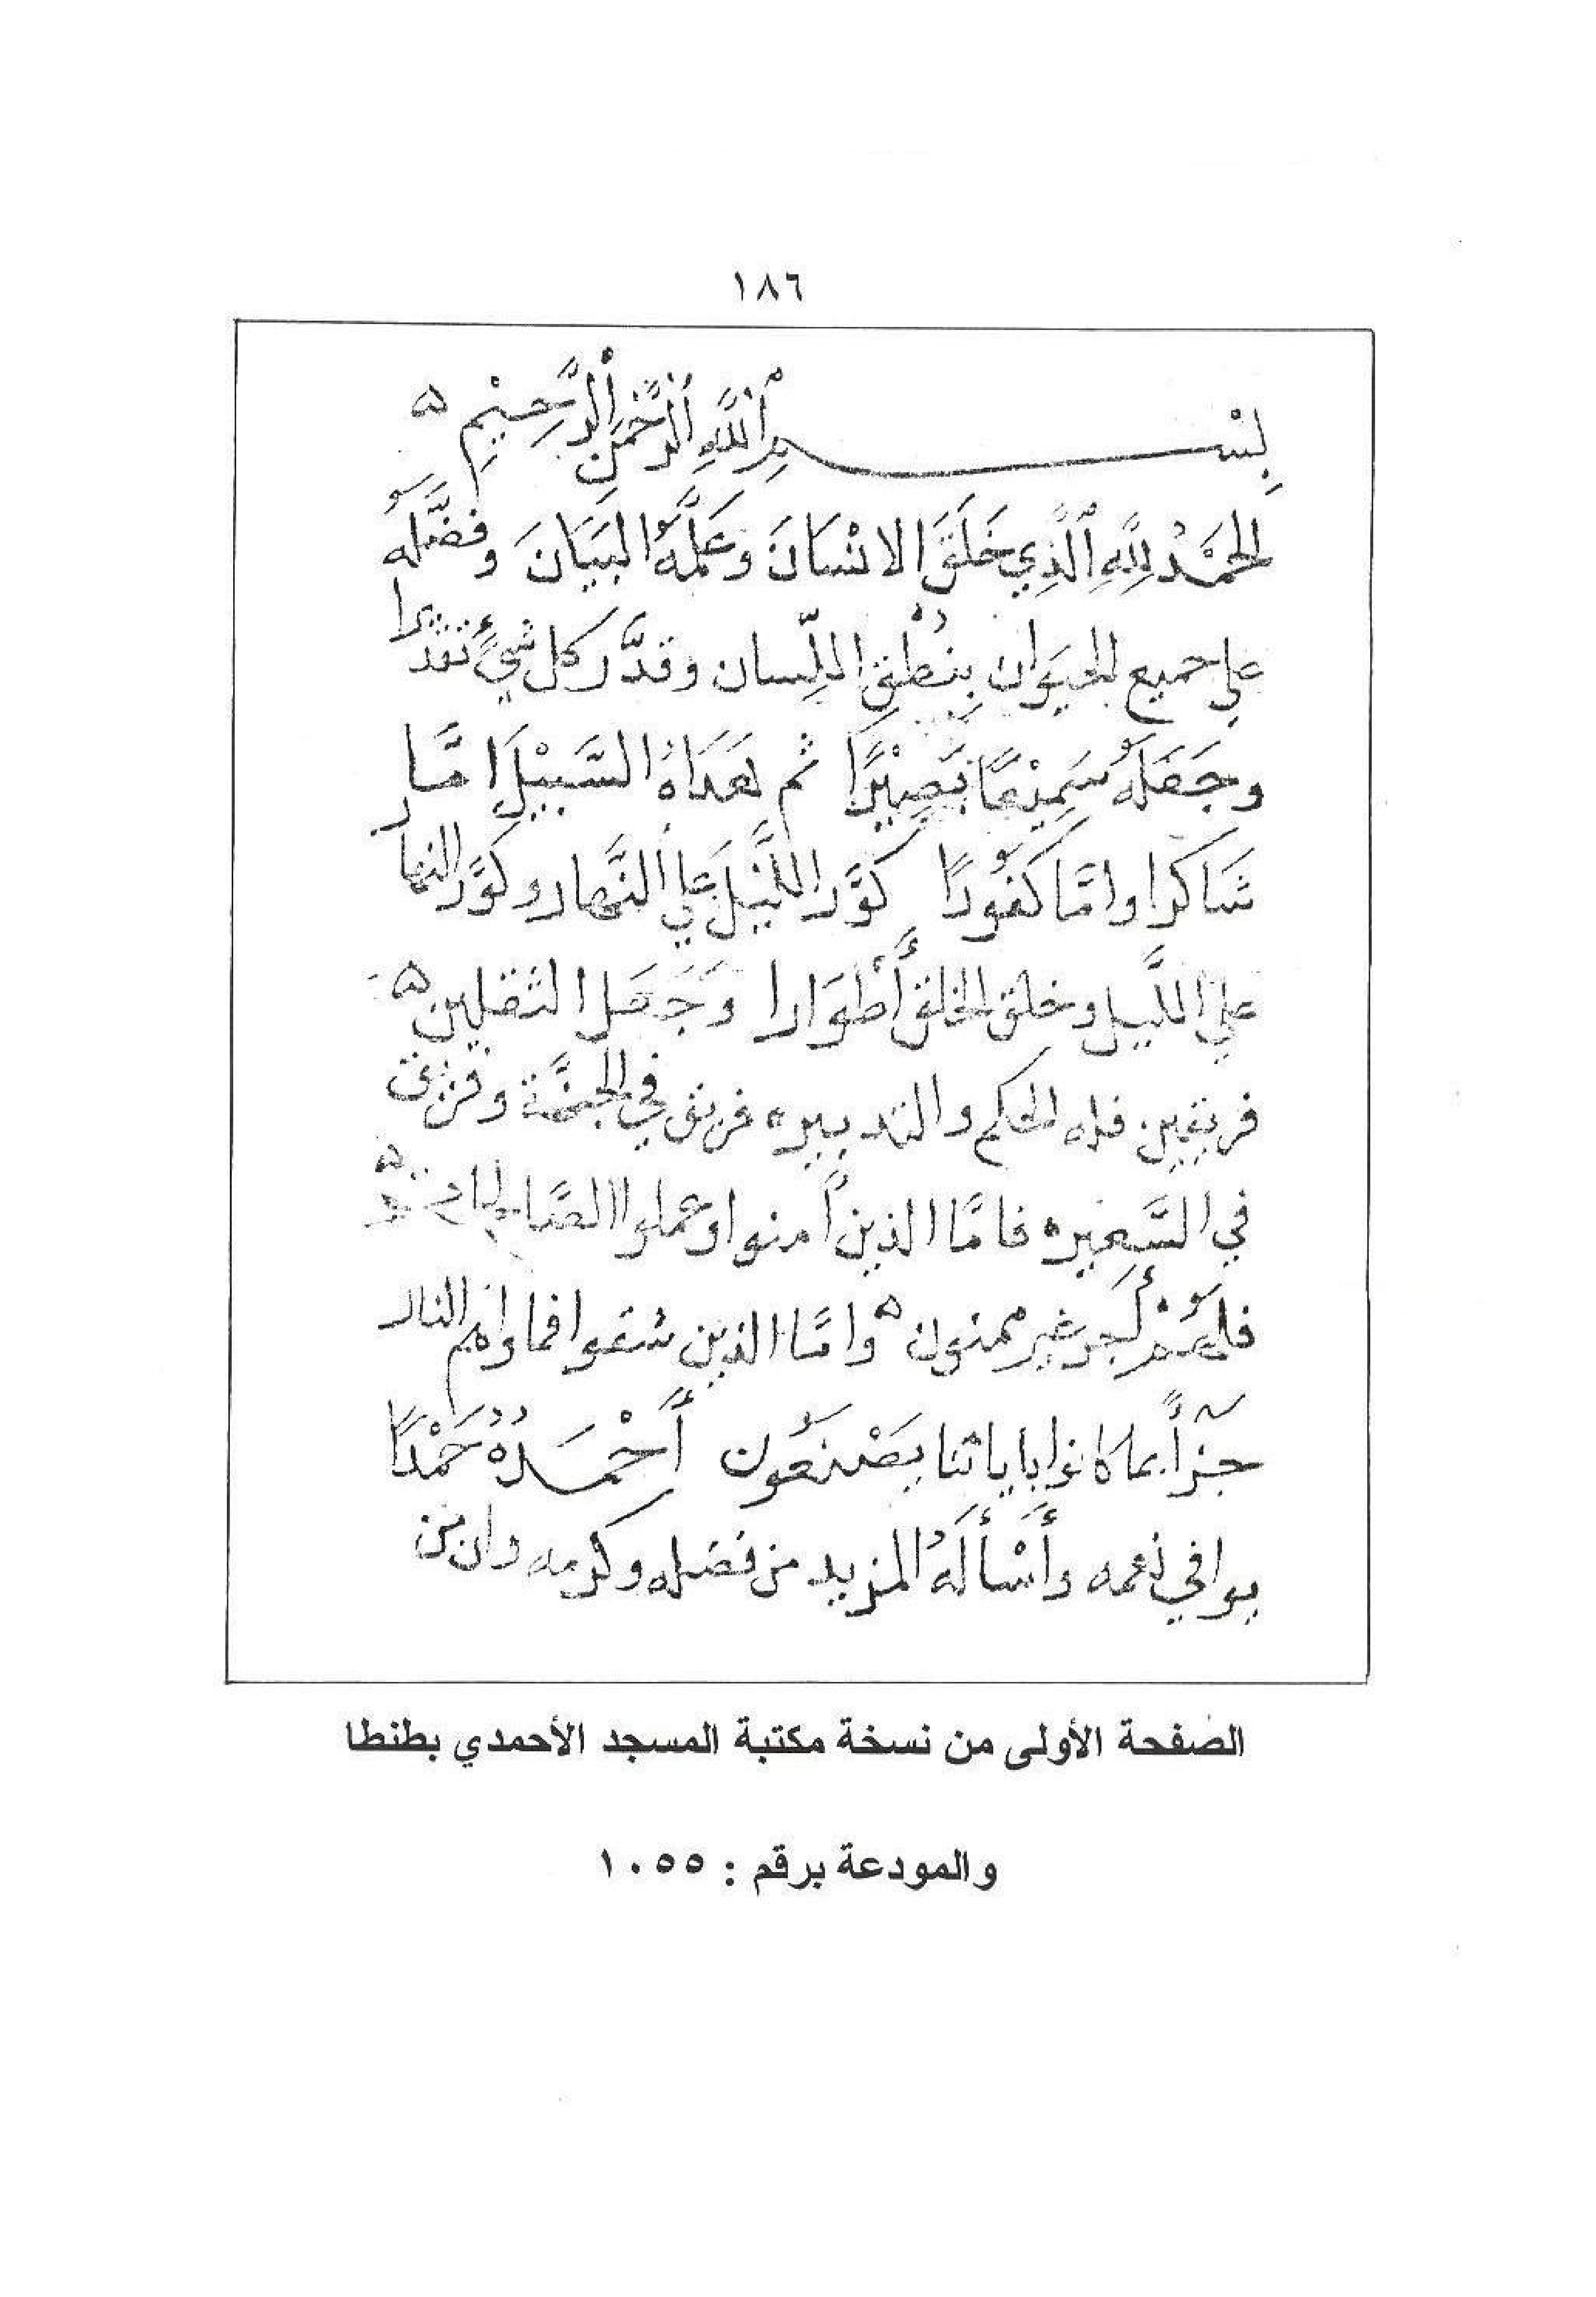 ١٨٦
بِسْـــــمِ ٱللَّهِ ٱلرَّحْمَنِ ٱلرَّحِيْمِ ه
الحَمْدُ لِلَّهِ ٱلَّذِي خَلَقَ الانْسَانَ وَعَلَّمَهُ البَيَانَ وفضَّلَهُ
علي جميع الحَيَوان بِنُطْقِ اللِّسان وقدَّر كل شيءٍ تقديرا
وجَعَلَهُ سَمِيْعًا بَصِيْرًا ثم هَدَاهُ السَّبِيْلَ امَّا
شَاكرا وامَّا كَفُورًا كَوَّر اللَّيْلَ علي النَّهار وكوَّر النهار
علي اللَّيل وخلق الخلق أَطْوَارا وَجَعَل الثقلين ه
فريقين فله الحكم والتدبير ه فريق في الجنَّة وفريق
في السَّعير ه فامَّا الذين أمنوا وعملوا الصَّالحات ه
فلهُمْ أَجر غير ممنون ه وامَّا الذين شقوا فماواهم النار
جزآً بما كانوا باياتنا يَصْنَعُون أَحْمَدُهُ حَمْدًا
يوافي نعمه وأَسْأَلَهُ المزيد من فضله وكرمه وان من
الصفحة الأولى من نسخة مكتبة المسجد الأحمدي بطنطا
والمودعة برقم : ١٠٥٥